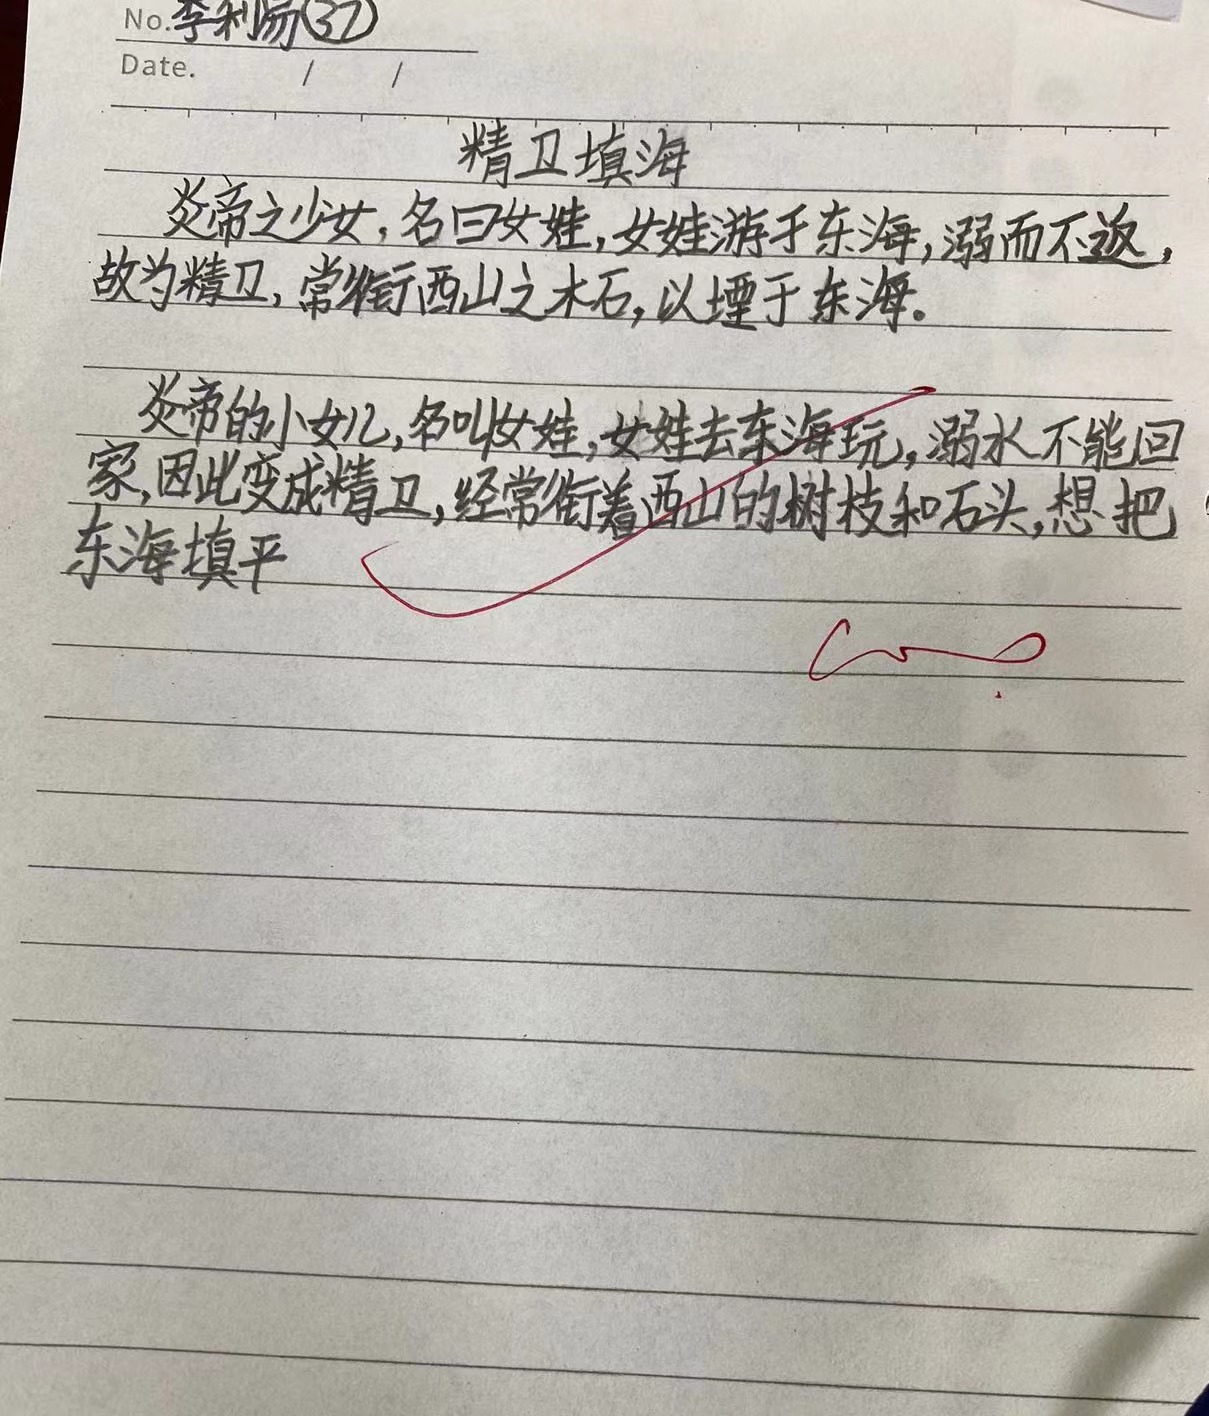 No.李利扬(37)
Date. / /
精卫填海
炎帝之少女,名曰女娃,女娃游于东海,溺而不返,
故为精卫,常衔西山之木石,以堙于东海。
炎帝的小女儿,名叫女娃,女娃去东海玩,溺水不能回
家,因此变成精卫,经常衔着西山的树枝和石头,想把
东海填平